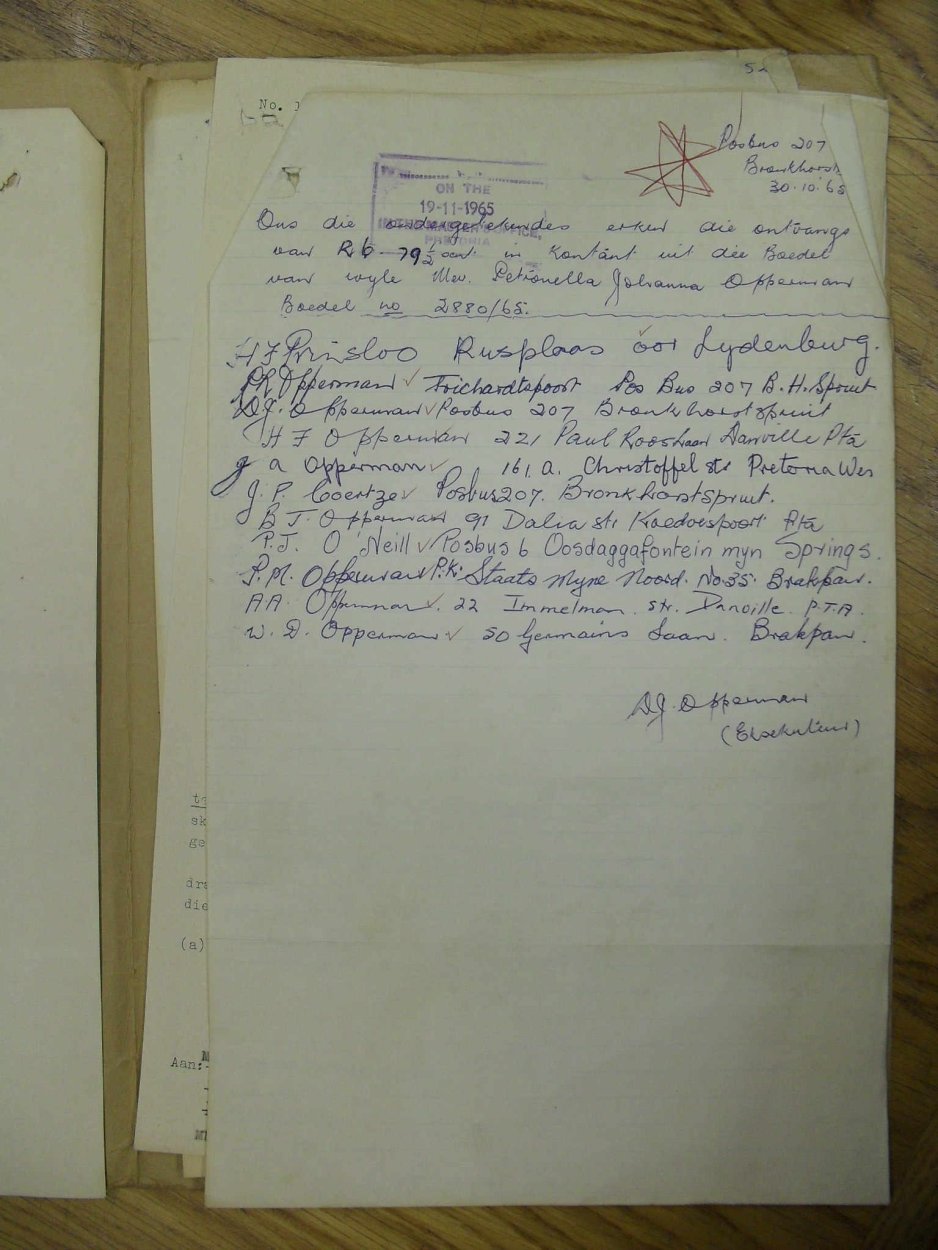 52
No.
Posbus 207
Bronkhorst
30.10.65
ON THE
19-11-1965
IN THE MASTER'S OFFICE,
PRETORIA
Ons die ondergetekendes erken die ontvangs
van R6-79½ sent in Kontant uit die Boedel
van wyle Mev. Petronella Johanna Opperman
Boedel no 2880/65.
H F Prinsloo Rusplaas oor Lydenburg.
Opperman Trichardtspoort Pos Bus 207 B.H. Spruit
D.J. Opperman Posbus 207 Bronkhorstspruit
H F Opperman 221 Paul Rooslaan Danville Pta
J a Opperman 161, a. Christoffel str Pretoria Wes
J. P. Coertze Posbus 207. Bronkhorstspruit.
B J. Opperman 91 Dalia str Koedoespoort Pta
P.J. O'Neill Posbus 6 Oosdaggafontein myn Springs.
P. M. Opperman P.K. Staats Myne Noord. No 35. Brakpan.
A A. Opperman. 22 Immelman. str. Danville. P.T.A.
W. D. Opperman 50 Germains Laan. Brakpan.
D.J. Opperman
(Eksekuteur)
sk
ge
dra
die
(a)
Aan:-